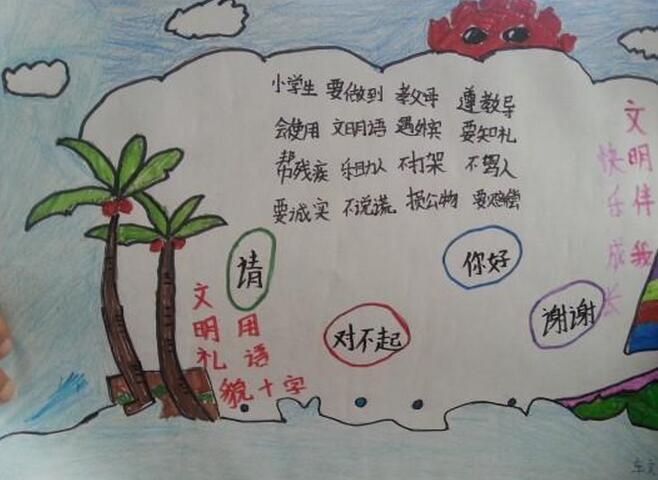 小学生 要做到 孝父母 遵教导
会使用 文明语 遇外宾 要知礼
帮残疾 乐助人 不打架 不骂人
要诚实 不说谎 损公物 要赔偿
文明伴我
快乐成长
请
你好
对不起
谢谢
文明礼貌
用语
十字